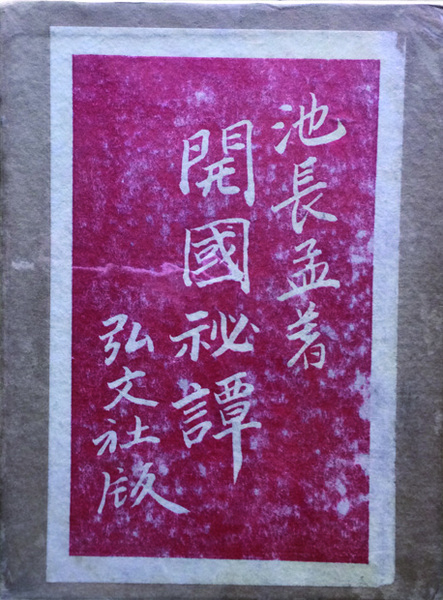 池長孟著
開國祕譚
弘文社版